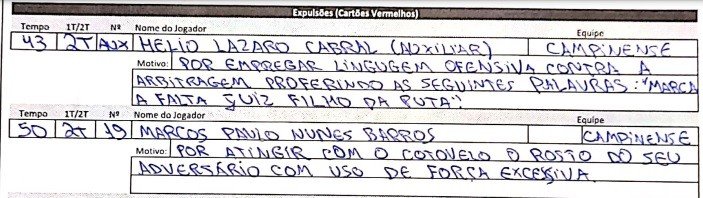 Expulsões (Cartões Vermelhos)
Tempo 1T/2T Nº Nome do Jogador Equipe
43 2T AUX HELIO LAZARO CABRAL (AUXILIAR) CAMPINENSE
Motivo: POR EMPREGAR LINGUGEM OFENSIVA CONTRA A
ARBITRAGEM PROFERINDO AS SEGUINTES PALAVRAS: "MARCA
A FALTA JUIZ FILHO DA PUTA"
Tempo 1T/2T Nº Nome do Jogador Equipe
50 2T 19 MARCOS PAULO NUNES BARROS CAMPINENSE
Motivo: POR ATINGIR COM O COTOVELO O ROSTO DO SEU
ADVERSÁRIO COM USO DE FORÇA EXCESSIVA